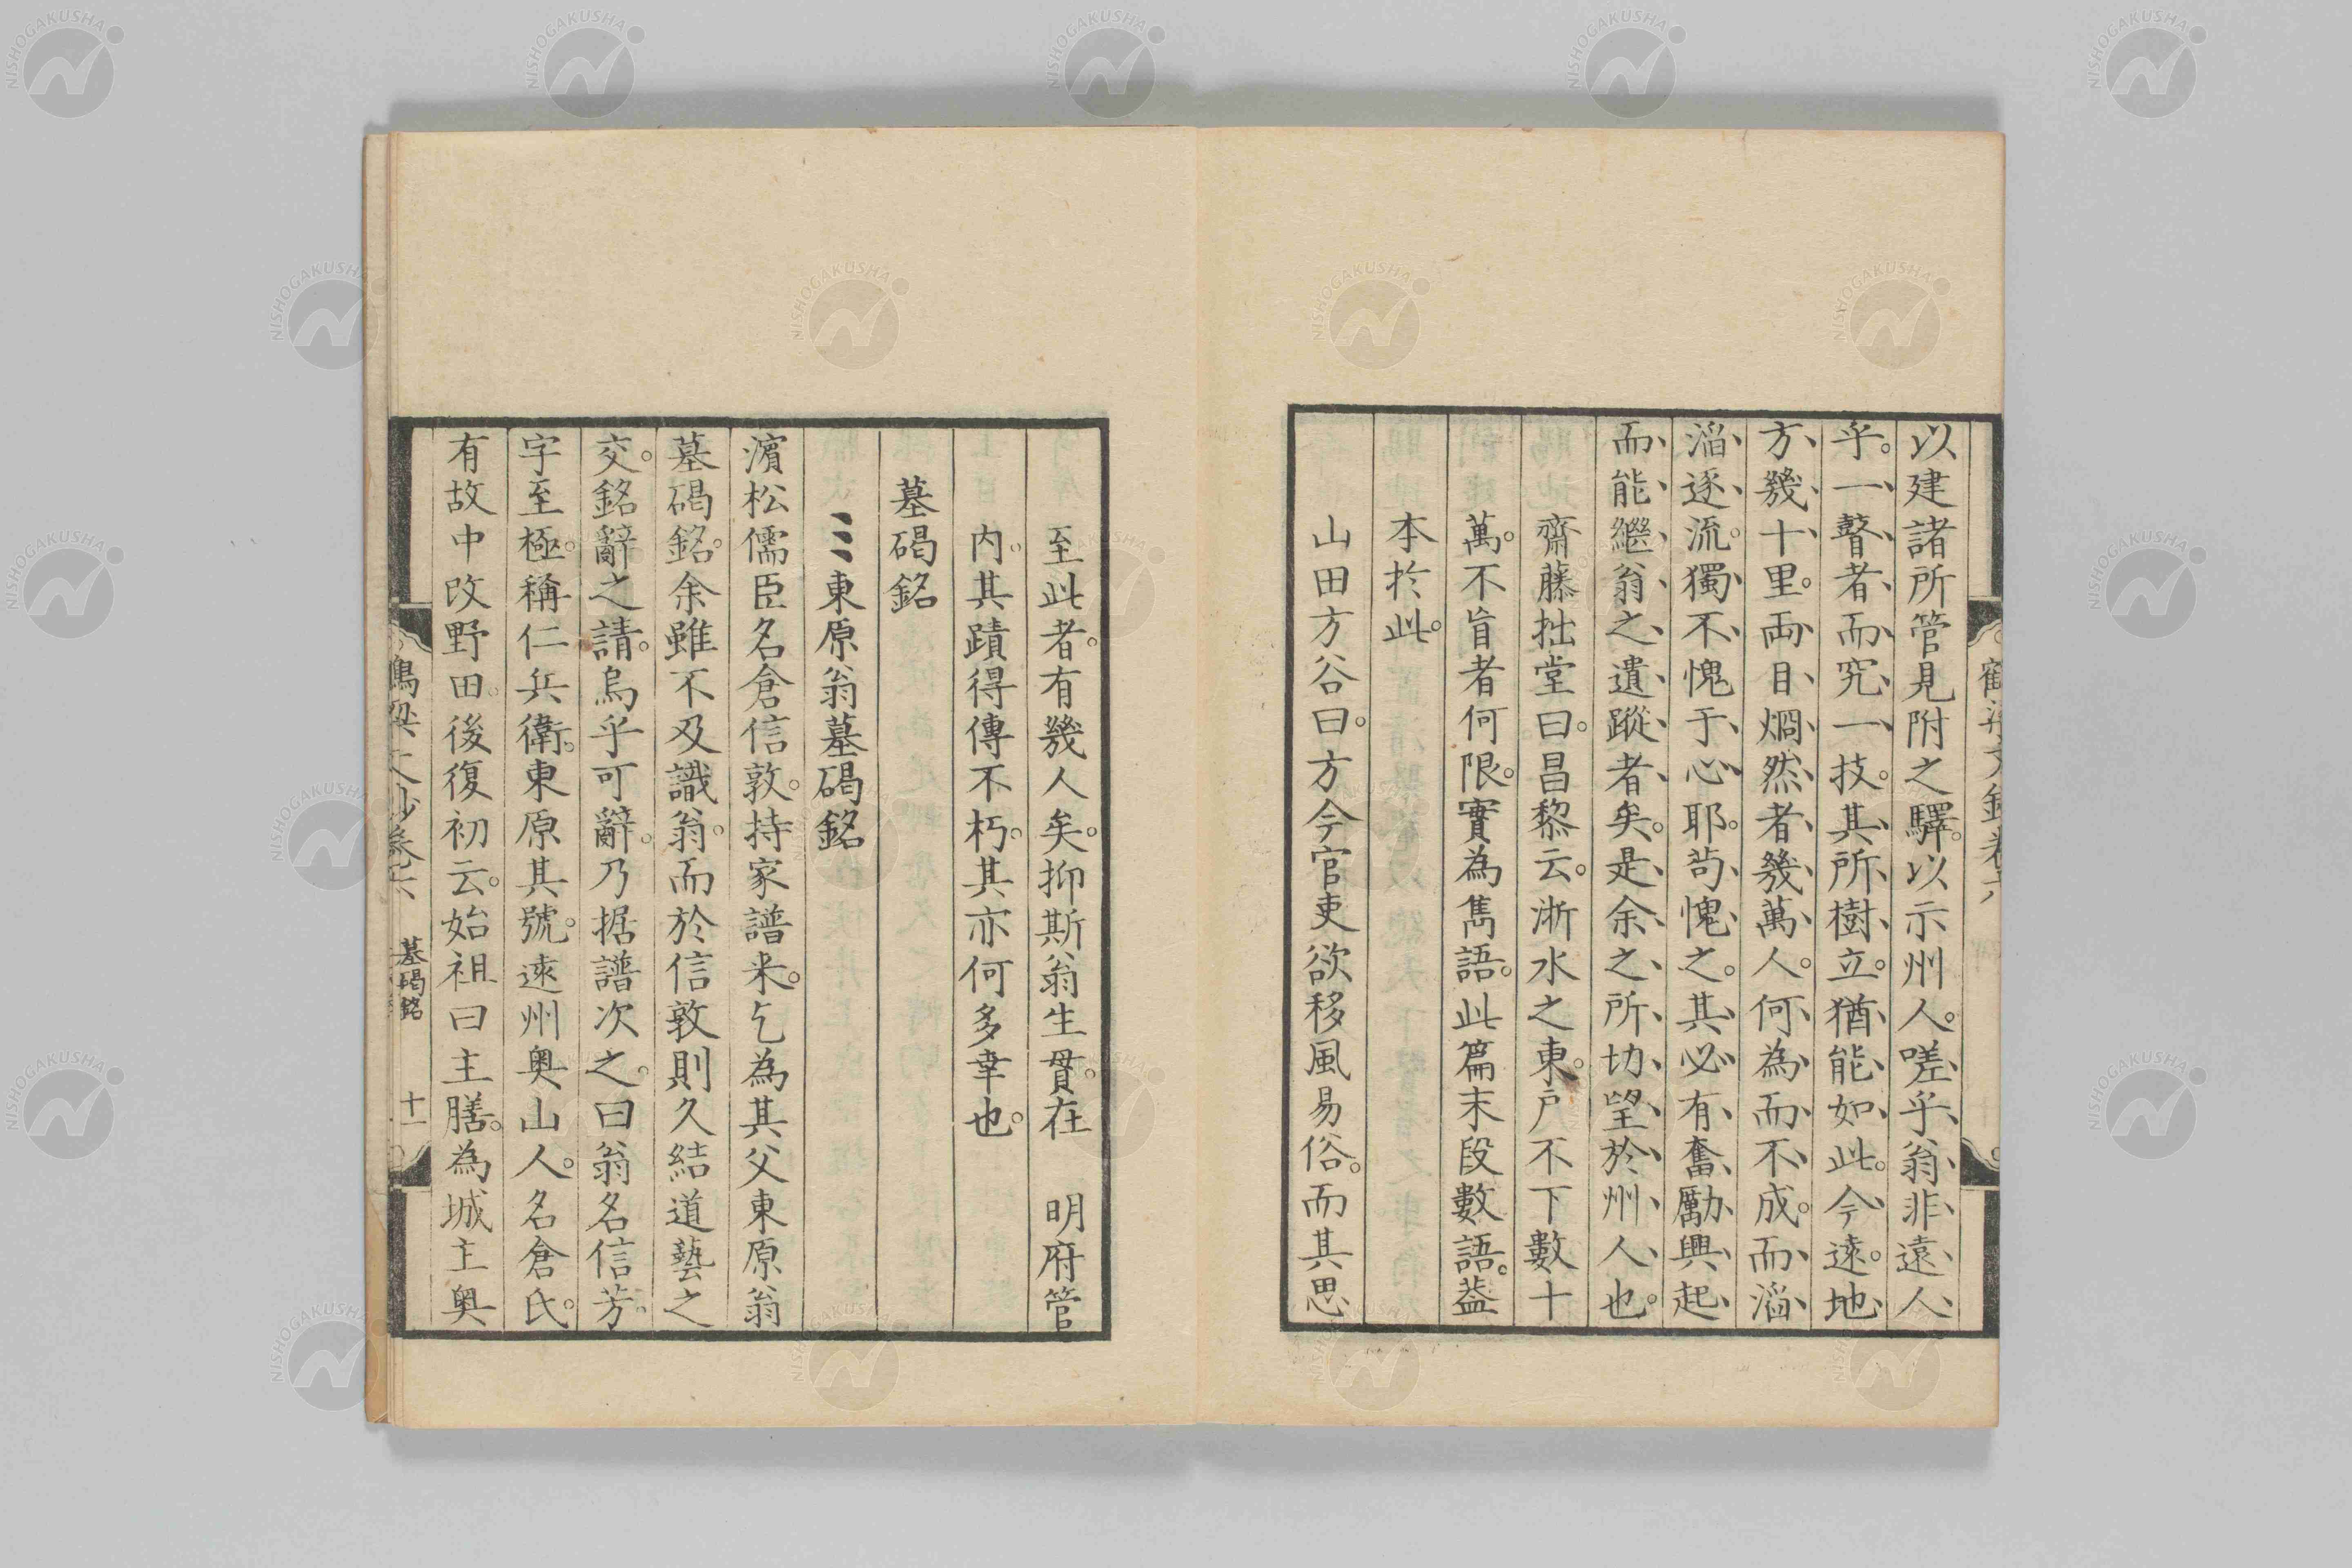 以建諸所管見附之驛。以示州人。嗟乎翁非遠人
乎。一瞽者而究一技。其所樹立。猶能如此。今遠。地
方幾十里。両目烱然者幾萬人。何為而不成。而滔
滔逐流。獨不愧于心耶。苟愧之。其必有奮勵興起
而能繼翁之遺蹤者矣。是余之所切望於州人也。
齋藤拙堂曰。昌黎云。浙水之東。戸不下數十
萬。不盲者何限。實為雋語。此篇末段數語。葢
本於此。
山田方谷曰。方今官吏欲移風易俗。而其思
至此者。有幾人矣。抑斯翁生貫。在 明府管
内。其蹟得傳不朽。其亦何多幸也。
墓碣銘
東原翁墓碣銘
濵松儒臣名倉信敦。持家譜来。乞為其父東原翁
墓碣銘。余雖不及識翁。而於信敦則久結道藝之
交。銘辭之請。烏乎可辭。乃据譜次之。曰翁名信芳。
字至極。稱仁兵衛。東原其號。遠州奥山人。名倉氏。
有故中改野田。後復初云。始祖曰主膳。為城主奥
墓碣銘
十一
NISHOGAKUSHA